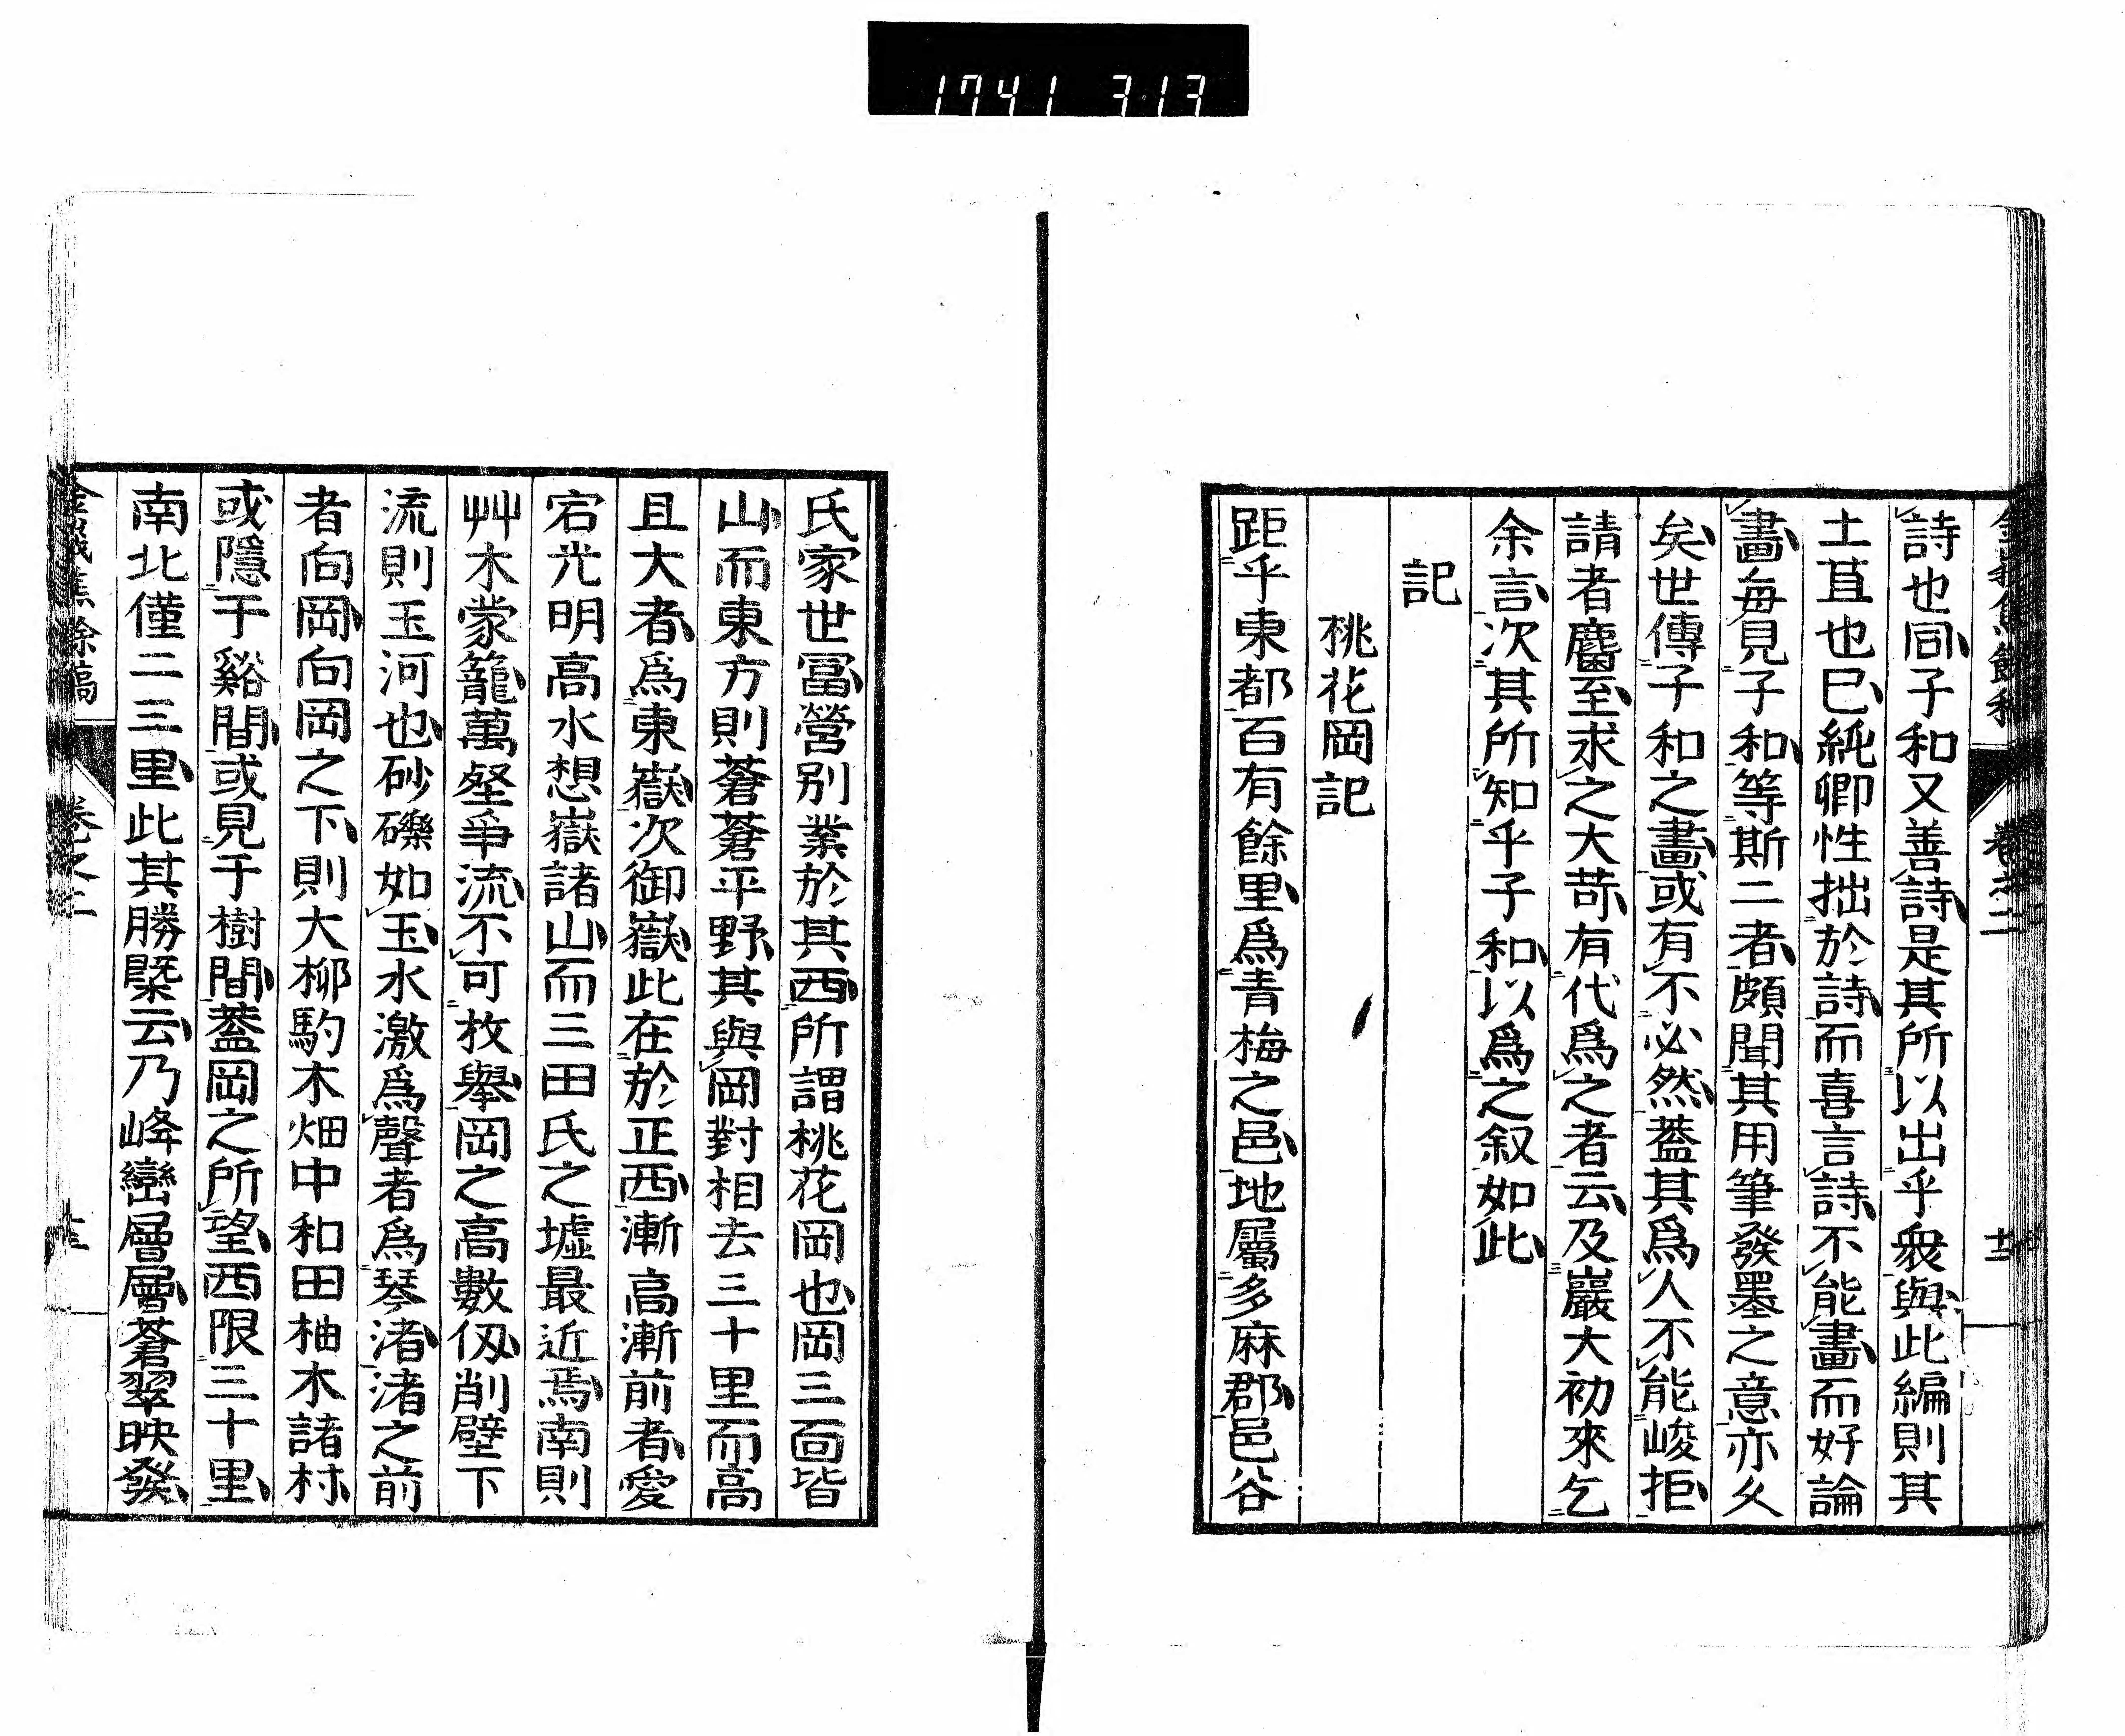 1741 313
詩也同子和又善詩是其所以出乎衆與此編則其
土苴也已純卿性拙於詩而喜言詩不能畫而好論
畫毎見子和等斯二者頗聞其用筆發墨之意亦久
矣世傳子和之畫或有不必然葢其爲人不能峻拒
請者麕至求之大苛有代爲之者云及巖大初來乞
余言次其所知乎子和以爲之叙如此
記
桃花岡記
距乎東都百有餘里爲青梅之邑地屬多麻郡邑谷
氏家世冨營别業於其西所謂桃花岡也岡三面皆
山而東方則蒼蒼平野其與岡對相去三十里而高
且大者爲東嶽次御嶽此在於正西漸高漸前者愛
宕光明高水想嶽諸山而三田氏之墟最近焉南則
艸木蒙籠萬壑爭流不可枚舉岡之高數仭削壁下
流則玉河也砂礫如玉水激爲聲者爲琴渚渚之前
者向岡向岡之下則大柳駒木畑中和田柚木諸村
或隱于谿間或見于樹間葢岡之所望西限三十里
南北僅二三里此其勝槩云乃峰巒層層蒼翠映發
餘稿
卷之二